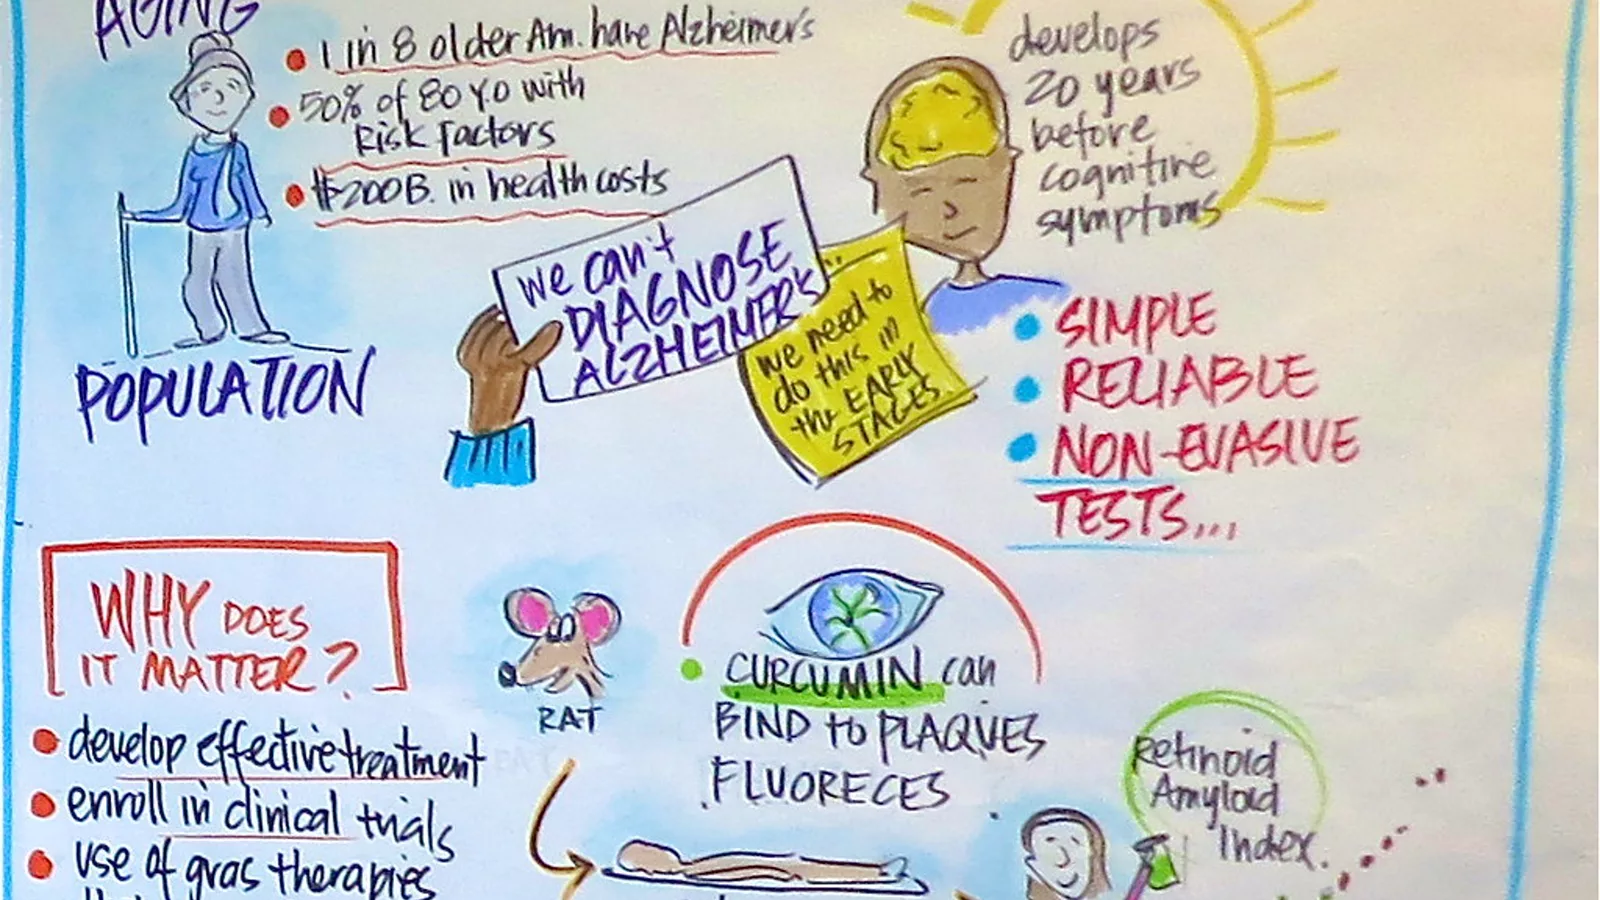 AGING
1 in 8 older Am. have Alzheimer's
50% of 80 Y.O with
Risk Factors
$200B. in health costs
POPULATION
we can't
DIAGNOSE
ALZHEIMER'S
we need to
do this in
the EARLY
STAGES.
develops
20 years
before
cognitive
symptoms
SIMPLE
RELIABLE
NON-EVASIVE
TESTS...
WHY DOES
IT MATTER?
develop effective treatment
enroll in clinical trials
use of gras therapies
RAT
CURCUMIN can
BIND to PLAQUES
FLUORECES
Retinoid
Amyloid
Index.